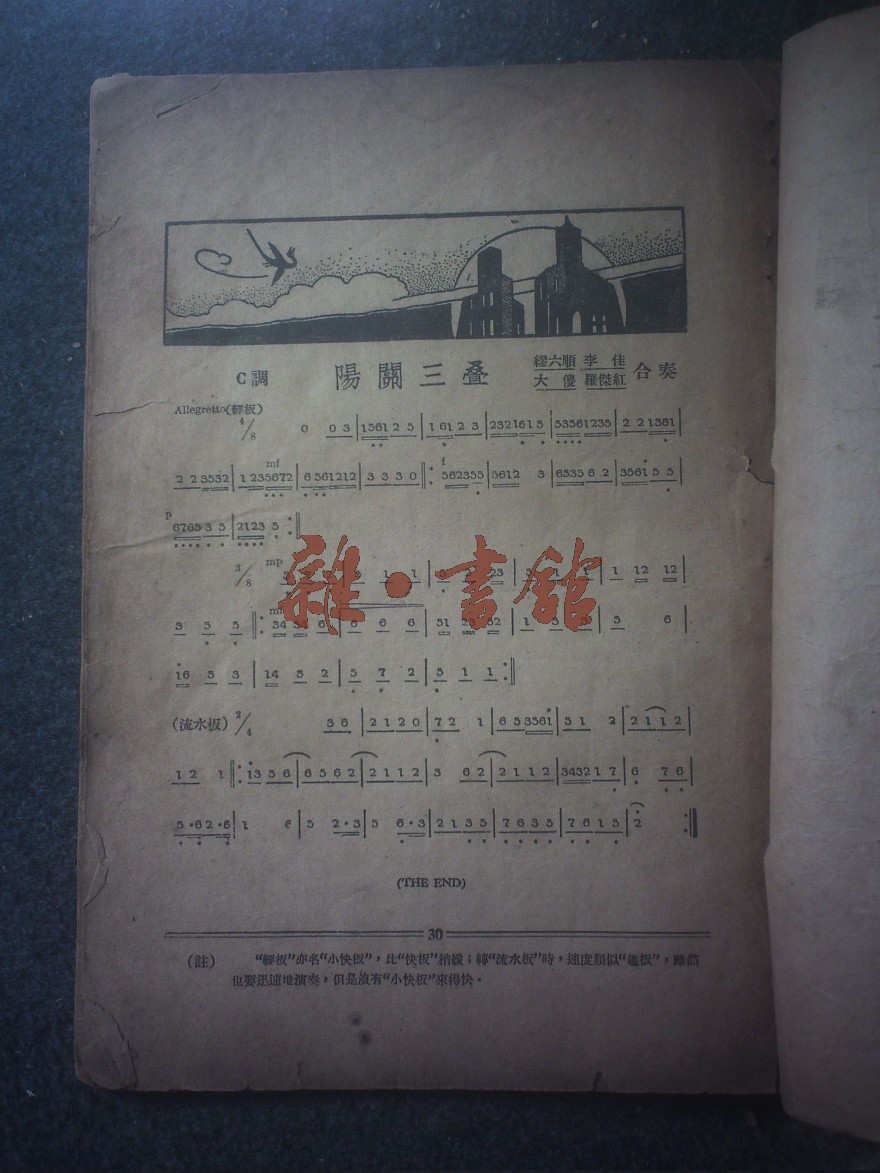 C調 陽關三叠 繆六順 李佳 大傻 羅傑紅 合奏
Allegretto(輕板)
4/8 0 0 3 | 1561 2 5 | 1 61 2 3 | 2321 61 5 | 53561235 | 2 2 1361 |
mf f
2 2 3532 | 1 235672 | 6 561212 | 3 3 3 0 ‖: 562355 | 5612 3 | 6535 6 2 | 3561 5 5 |
P
6765 3 5 | 2123 5 :‖
3/8 mp
雜·書館
1 12 12 |
3 5 5 ‖: 34 34 6 | 6 6 6 | 51 23 52 | 1 3 3 | 5 6 |
16 5 3 | 14 5 2 | 5 7 2 | 5 1 1 :‖
(流水板) 2/4 3 6 | 2 1 2 0 | 7 2 1 | 6 5 3561 | 5 1 2 | 2 1 1 2 |
1 2 1 ‖: 1 3 5 6 | 6 5 6 2 | 2 1 1 2 | 3 6 2 | 2 1 1 2 | 3432 1 7 | 6 7 6 |
5·6 2·6 | 1 | 5 2·3 | 5 6·3 | 2 1 3 5 | 7 6 3 5 | 7 6 1 5 | 2 :‖
(THE END)
30
(註) “輕板”亦名“小快板”，比“快板”稍緩；轉“流水板”時，速度類似“板”，雖然
也要迅速地演奏，但是沒有“小快板”來得快．